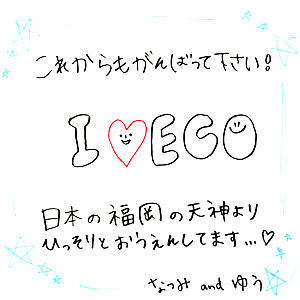 これからもがんばって下さい!
I ♡ ECO
日本の福岡の天神より
ひっそりとおうえんしてます...♡
なつみ and ゆう